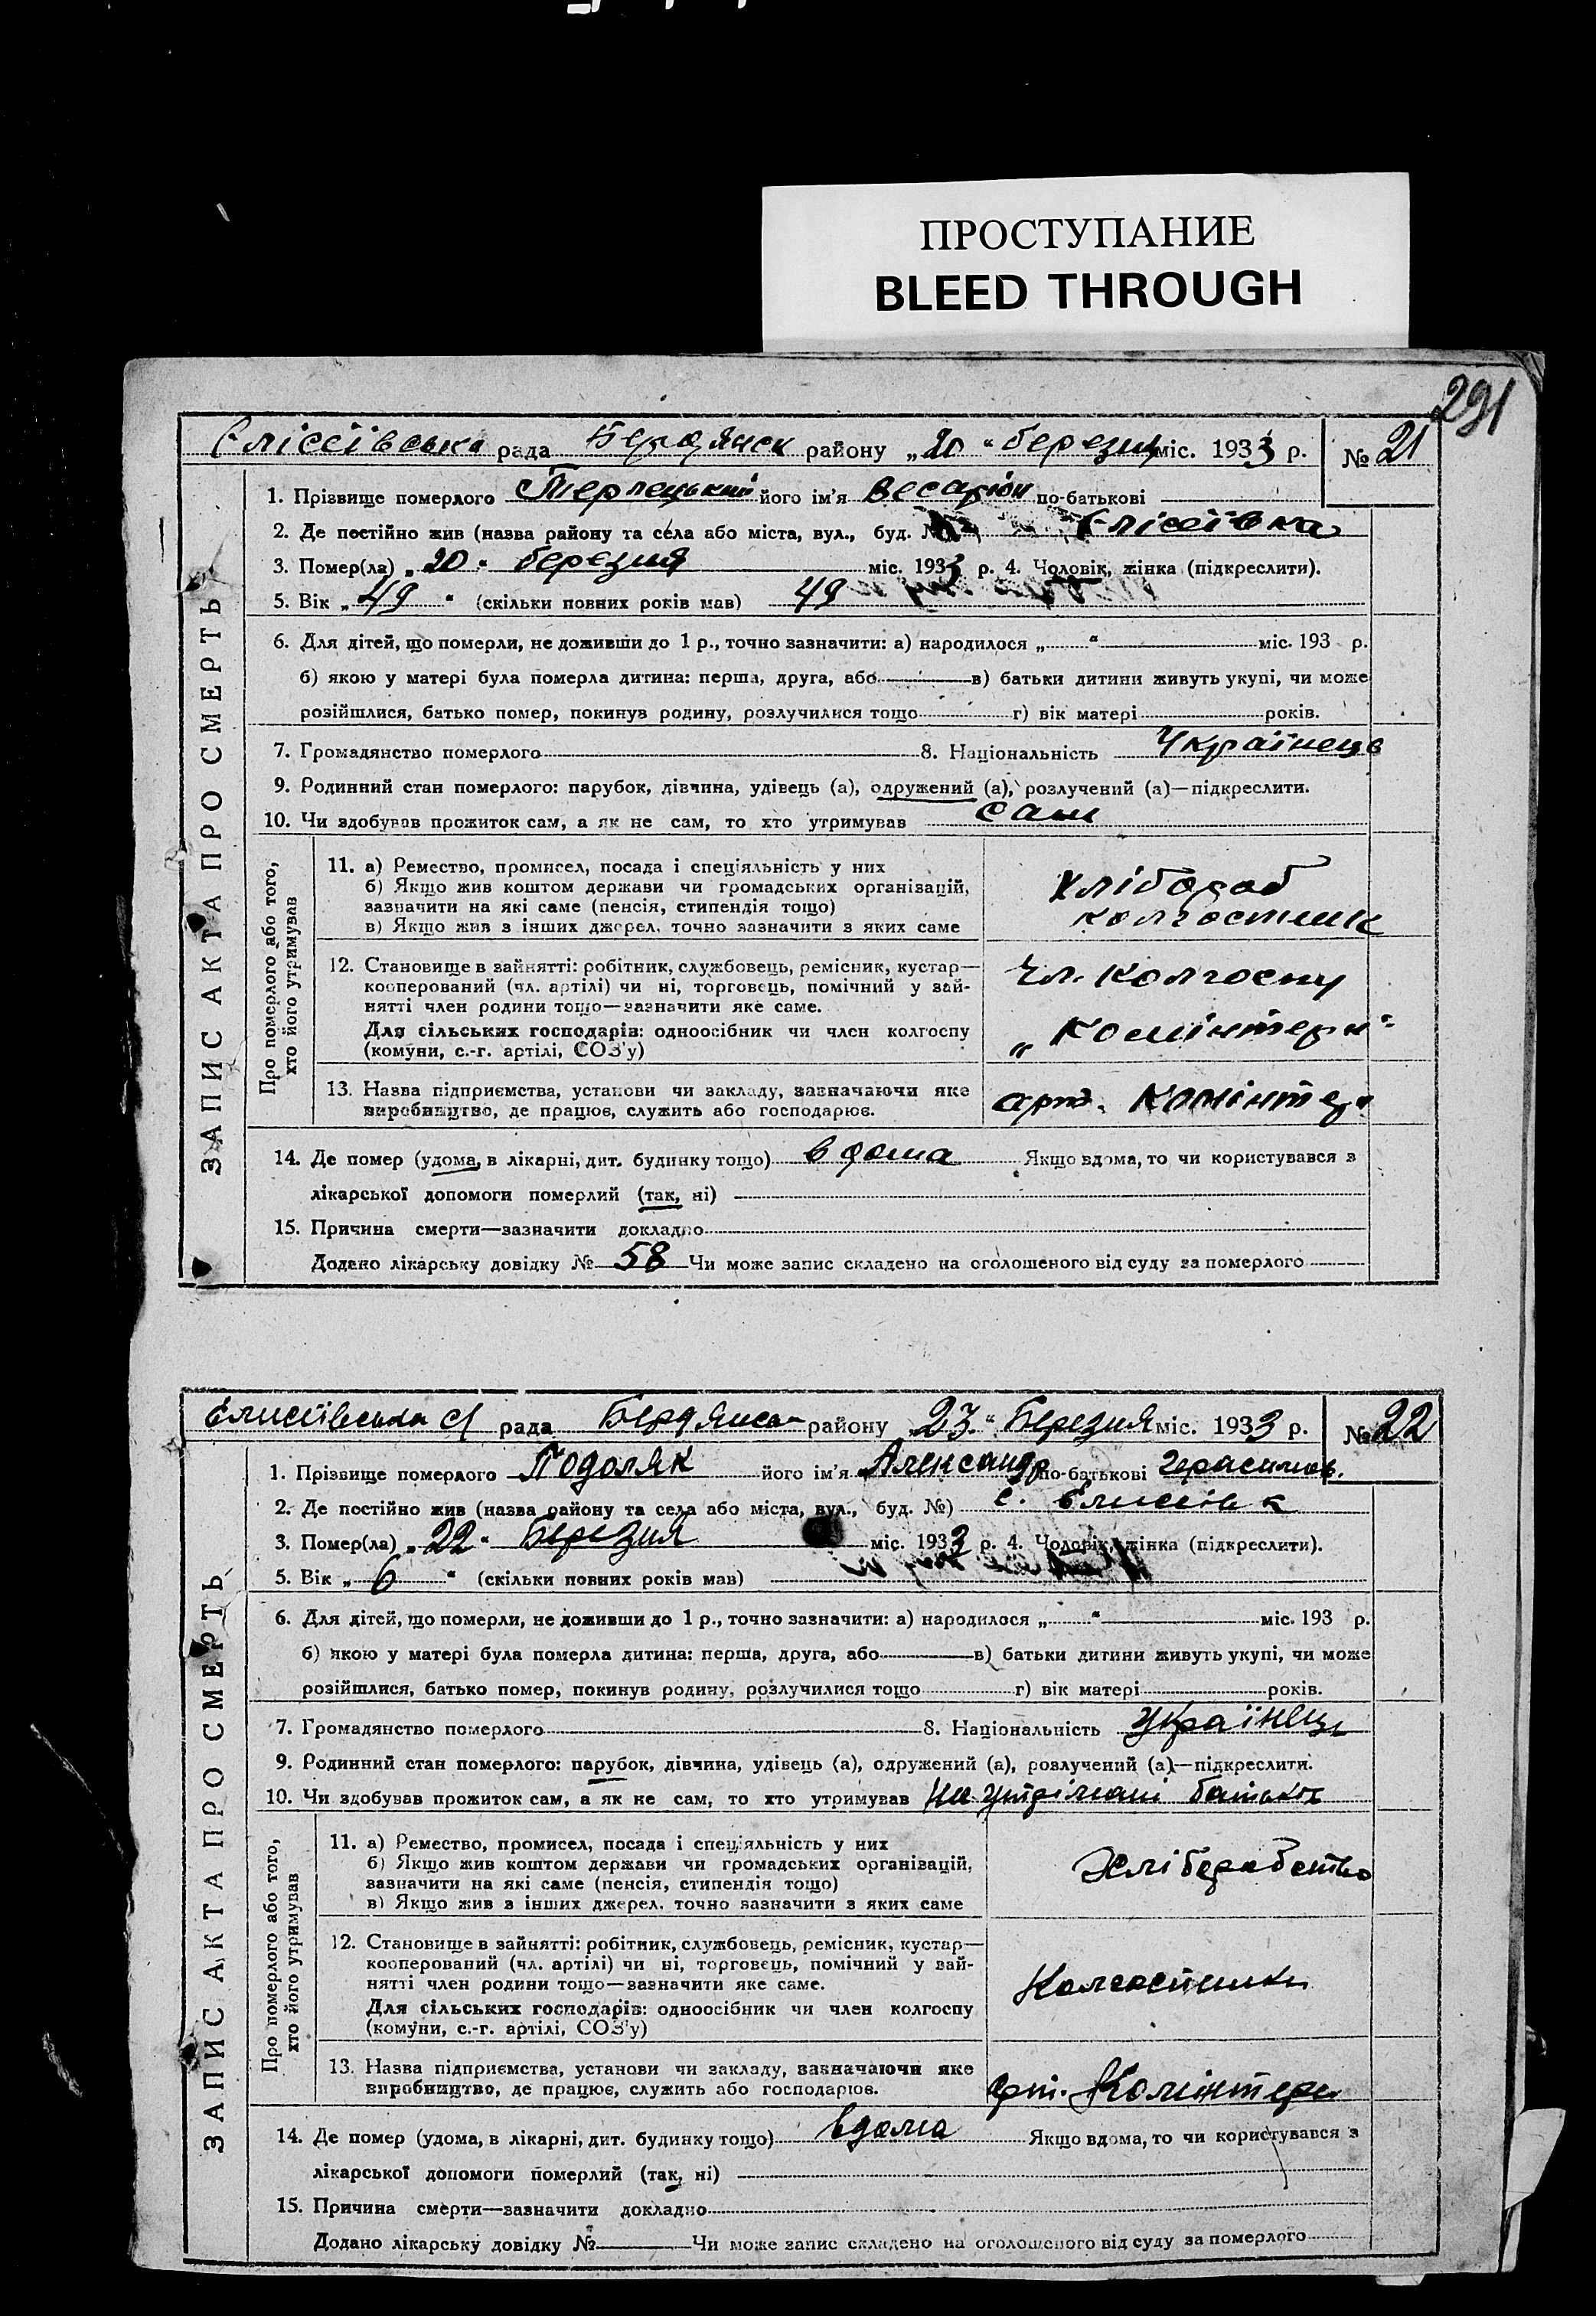 ПРОСТУПАНИЕ
BLEED THROUGH
291
Єлісеївська рада Бердянск району „20“ березня міс. 1933 р. № 21
1. Прізвище померлого Терлецький його ім'я Весаріон по-батькові
2. Де постійно жив (назва району та села або міста, вул., буд. № Єлісеївка
3. Помер(ла) „20“ березня міс. 1933 р. 4. Чоловік, жінка (підкреслити).
5. Вік „49“ (скільки повних років мав) 49
6. Для дітей, що померли, не доживши до 1 р., точно зазначити: а) народилося „ “ міс. 193 р.
б) якою у матері була померла дитина: перша, друга, або в) батьки дитини живуть укупі, чи може
розійшлися, батько помер, покинув родину, розлучилися тощо г) вік матері років.
7. Громадянство померлого 8. Національність Українець
9. Родинний стан померлого: парубок, дівчина, удівець (а), одружений (а), розлучений (а)—підкреслити.
10. Чи здобував прожиток сам, а як не сам, то хто утримував сам
ЗАПИС АКТА ПРО СМЕРТЬ
Про померлого або того,
хто його утримував
11. а) Ремество, промисел, посада і спеціяльність у них
б) Якщо жив коштом держави чи громадських організацій,
зазначити на які саме (пенсія, стипендія тощо)
в) Якщо жив з інших джерел, точно зазначити з яких саме
хлібороб
колгоспник
12. Становище в зайнятті: робітник, службовець, ремісник, кустар—
кооперований (чл. артілі) чи ні, торговець, помічний у зай-
нятті член родини тощо—зазначити яке саме.
Для сільських господарів: одноосібник чи член колгоспу
(комуни, с.-г. артілі, СОЗ'у)
чл. колгоспу
„Комінтерн“
13. Назва підприємства, установи чи закладу, зазначаючи яке
виробництво, де працює, служить або господарює.
арт. Комінтерн
14. Де помер (удома, в лікарні, дит. будинку тощо) вдома Якщо вдома, то чи користувався з
лікарської допомоги померлий (так, ні)
15. Причина смерти—зазначити докладно
Додано лікарську довідку № 58 Чи може запис складено на оголошеного від суду за померлого
Єлисеївська с/ рада Бердянськ району „23“ Березня міс. 1933 р. № 22
1. Прізвище померлого Подоляк його ім'я Александр по-батькові Герасимов.
2. Де постійно жив (назва району та села або міста, вул., буд. №) с. Єлисеівк
3. Помер(ла) „22“ Березня міс. 1933 р. 4. Чоловік, жінка (підкреслити).
5. Вік „6“ (скільки повних років мав)
6. Для дітей, що померли, не доживши до 1 р., точно зазначити: а) народилося „ “ міс. 193 р.
б) якою у матері була померла дитина: перша, друга, або в) батьки дитини живуть укупі, чи може
розійшлися, батько помер, покинув родину, розлучилися тощо г) вік матері років.
7. Громадянство померлого 8. Національність Українець
9. Родинний стан померлого: парубок, дівчина, удівець (а), одружений (а), розлучений (а)—підкреслити.
10. Чи здобував прожиток сам, а як не сам, то хто утримував На утрімані батьків
ЗАПИС АКТА ПРО СМЕРТЬ
Про померлого або того,
хто його утримував
11. а) Ремество, промисел, посада і спеціяльність у них
б) Якщо жив коштом держави чи громадських організацій,
зазначити на які саме (пенсія, стипендія тощо)
в) Якщо жив з інших джерел, точно зазначити з яких саме
Хліборобство
12. Становище в зайнятті: робітник, службовець, ремісник, кустар—
кооперований (чл. артілі) чи ні, торговець, помічний у зай-
нятті член родини тощо—зазначити яке саме.
Для сільських господарів: одноосібник чи член колгоспу
(комуни, с.-г. артілі, СОЗ'у)
Колгоспники
13. Назва підприємства, установи чи закладу, зазначаючи яке
виробництво, де працює, служить або господарює.
арт. Комінтерн
14. Де помер (удома, в лікарні, дит. будинку тощо) вдома Якщо вдома, то чи користувався з
лікарської допомоги померлий (так, ні)
15. Причина смерти—зазначити докладно
Додано лікарську довідку № Чи може запис складено на оголошеного від суду за померлого